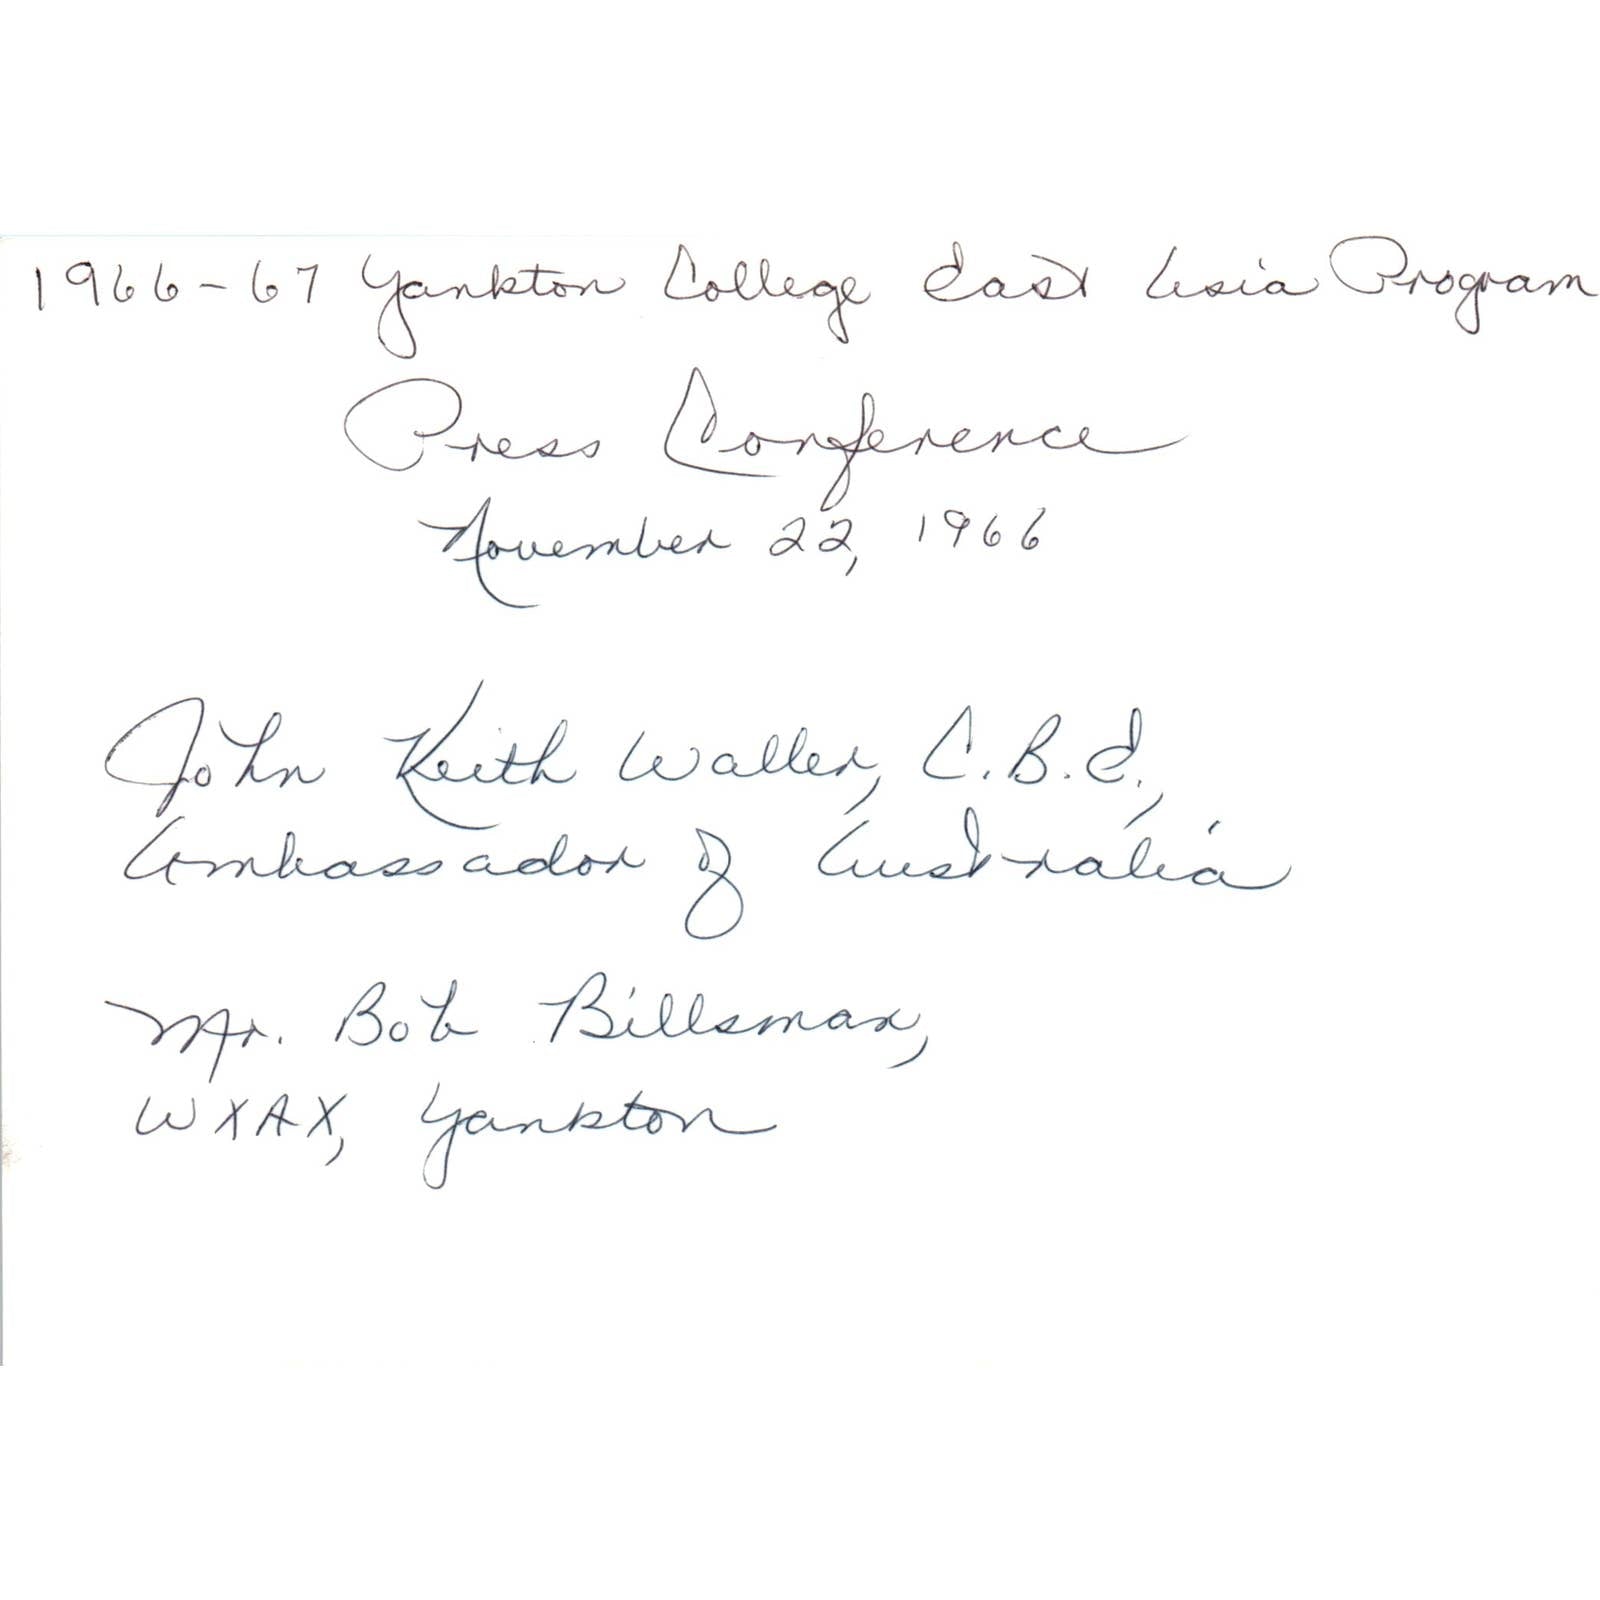 1966-67 Yankton College East Asia Program
Press Conference
November 22, 1966
John Keith Waller, C.B.E.,
Ambassador of Australia
Mr. Bob Billsman,
WXAX, Yankton